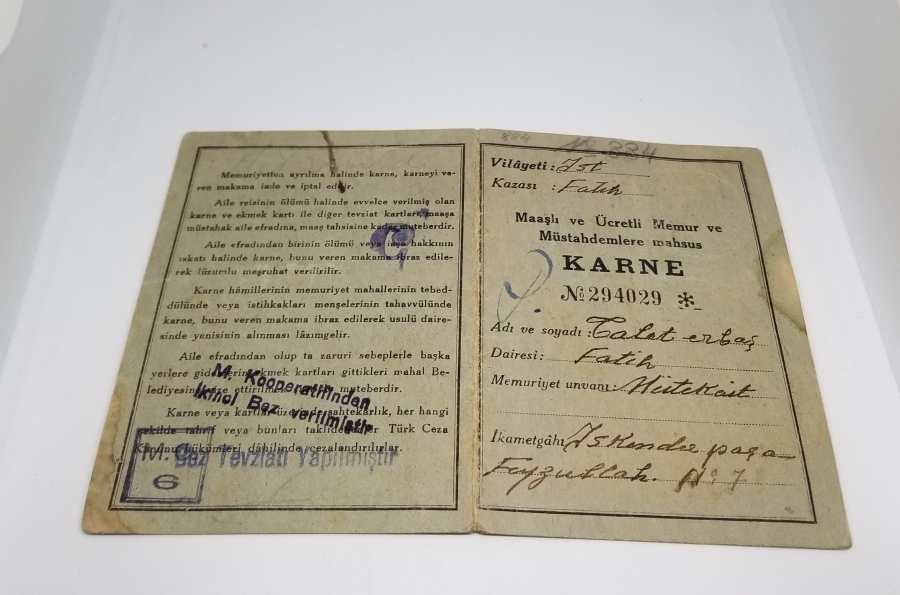 Memuriyetten ayrılma halinde karne, karneyi ve-
ren makama iade ve iptal edilir.
Aile reisinin ölümü halinde evvelce verilmiş olan
karne ve ekmek kartı ile diğer tevziat kartları, maaşa
müstahak aile efradına, maaş tahsisine kadar muteberdir.
Aile efradından birinin ölümü veya iaşe hakkının
ıskatı halinde karne, bunu veren makama ibraz edile-
rek lüzumlu meşruhat verdirilir.
Karne hâmillerinin memuriyet mahallerinin tebed-
dülünde veya istihkakları menşelerinin tahavvülünde
karne, bunu veren makama ibraz edilerek usulü daire-
sinde yenisinin alınması lâzımgelir.
Aile efradından olup ta zaruri sebeplerle başka
yerlere ekmek kartları gittikleri mahal Be-
lediyesine muteberdir.
Karne veya sahtekârlık, her hangi
şekilde tahrif veya bunları Türk Ceza
Kanunu hükümleri dâhilinde cezalandırılırlar.
M. Kooperatifinden
İkinci Bez verilmiştir
Bez Tevziatı Yapılmıştır
6
No 884
Vilâyeti : İst
Kazası : Fatih
Maaşlı ve Ücretli Memur ve
Müstahdemlere mahsus
KARNE
№ 294029 *
Adı ve soyadı : Talet erbaş
Dairesi : Fatih
Memuriyet unvanı : Mütekait
İkametgâhı İskender paşa
Feyzullah. No 7